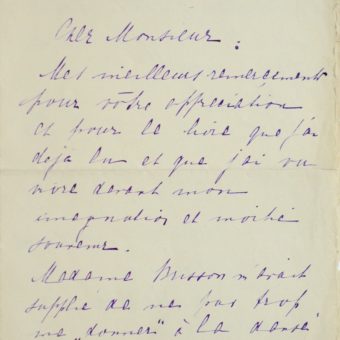 Cher Monsieur :
Mes meilleurs remerciements
pour vôtre appréciation
et pour le livre que j'ai
déjà lu et que j'ai vu
vivre devant mon
imagination et moitié
souvenir.
Madame Brisson m'avait
supplié de ne pas trop
me „donner" à la danse